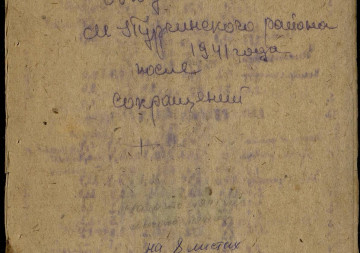 см Тургинского района
1941 года
после
сокращений
на 8 листах